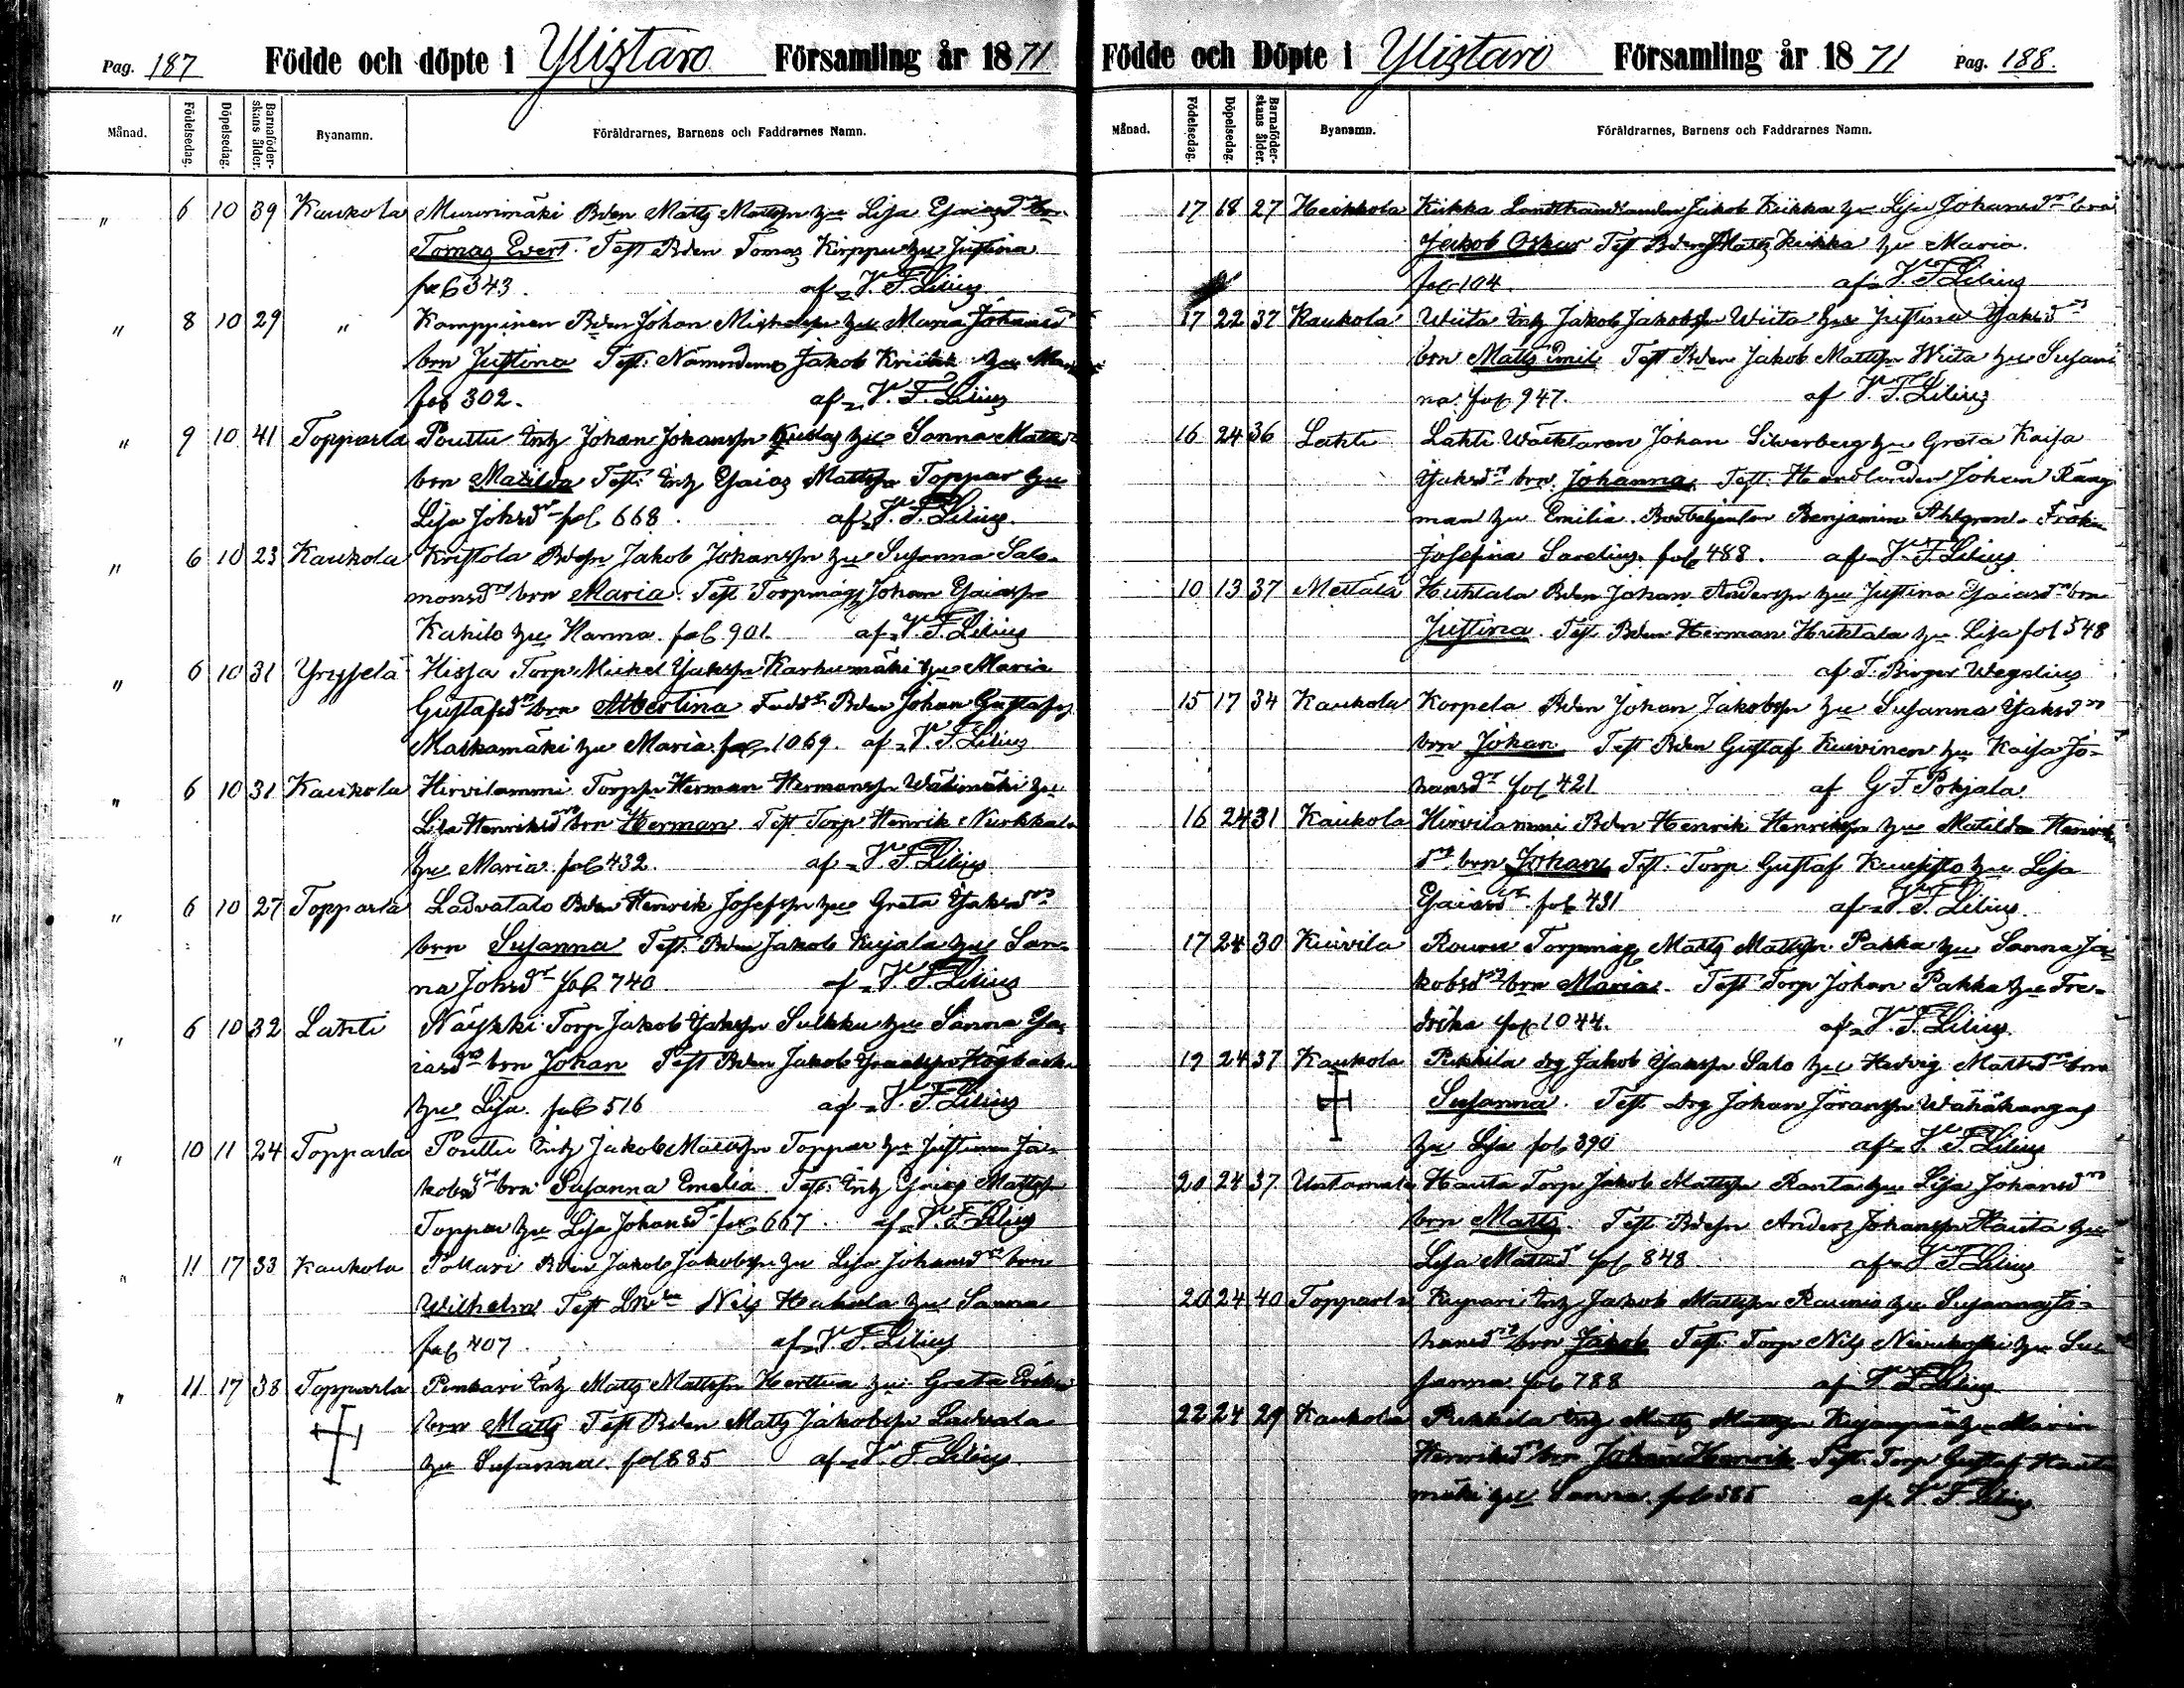 Pag. 187 Födde och döpte i Ylistaro Församling år 1871
Månad. Födelsedag. Döpelsedag. Barnaföderskans ålder. Byanamn. Föräldrarnes, Barnens och Faddrarnes Namn.
" 6 10 39 Kaukola Murrimäki Bden Matts Mattsn hu Lisa Esaiasdr brn
Tomas Evert. Test Bden Tomas Kirppu hu Justina
fol 343. af V. F. Lilius
" 8 10 29 " Kamppinen Bden Johan hu Maria Johansd
brn Justina Test: Nämndem Jakob hu
fol 302. af V. F. Lilius
" 9 10 41 Topparla Pouttu Inh Johan Johansn hu Sanna Matts
brn Matilda Test: Inh Esaias Mattsn Toppar hu
Lisa Johsdr fol 668. af V. F. Lilius.
" 6 10 23 Kaukola Kristola Bdesn Jakob Johansn hu Susanna Salo-
monsdr brn Maria. Test Torpmåg Johan Esaiasn
hu Hanna. fol 901. af V. F. Lilius
" 6 10 31 Yryselä Hissa Torp Mickel Jaksn Karhumäki hu Maria
Gustafsdr brn Albertina Fadd Bden Johan Gustafs
Matkamäki hu Maria fol 1069. af V. F. Lilius
" 6 10 31 Kaukola Hirvilammi Torpsn Herman Hermansn Wälimäki hu
Lisa Henriksdr brn Herman. Test Torp Henrik Nurkkala
hu Maria fol 432. af V. F. Lilius
" 6 10 27 Topparla Ladvatalo Bden Henrik Josefsn hu Greta Jaksdr
brn Susanna Test: Bden Jakob Kujala hu San-
na Johsdr fol 740 af V. F. Lilius
" 6 10 32 Lahti Näykki Torp Jakob Jaksn Sulkku hu Sanna Esa-
iasdr brn Johan Test Bden Jakob Högback
hu Lisa. fol 516 af V. F. Lilius
" 10 11 24 Topparla Pouttu Inh Jakob Mattsn Toppar hu Justina Ja-
kobsdr brn Susanna Emelia. Test: Inh Esaias Mattsn
Toppar hu Lisa Johansdr fol 667. af V. F. Lilius
" 11 17 33 Kaukola Pollari Bden Jakob Jakobsn hu Lisa Johansdr brn
Wilhelm Test Nils Hakola hu Sanna
fol 407 af V. F. Lilius
" 11 17 38 Topparla Penkari Inh Matts Mattsn Herttua hu Greta Eriks
brn Matts Test Bden Matts Jakobsn Ladvala
hu Susanna. fol 885 af V. F. Lilius
Födde och Döpte i Ylistaro Församling år 1871 Pag. 188.
Månad. Födelsedag. Döpelsedag. Barnaföderskans ålder. Byanamn. Föräldrarnes, Barnens och Faddrarnes Namn.
17 18 27 Heikkola Kiikka Landthandlanden Jakob Kiikka hu Lisa Johansdr brn
Jakob Oskar Test Bden Matts Kiikka hu Maria.
fol 104. af V. F. Lilius
17 22 37 Kaukola Wiita Inh Jakob Jakobsn Wiita hu Justina Jaksdr
brn Matts Emil Test Bden Jakob Mattsn Wiita hu Susan-
na. fol 947. af V. F. Lilius
16 24 36 Lahti Lahti Wäktaren Johan Silverberg hu Greta Kaisa
Jaksdr brn. Johanna. Test: Handlanden Johan Rang
man hu Emilia. Bodbetjenten Benjamin Ahlgren. Frök
Josefina Sarelius. fol 488. af V. F. Lilius
10 13 37 Mettälä Huhtala Bden Johan Andersn hu Justina Esaiasdr brn
Justina. Test Bden Herman Huhtala hu Lisa fol 548
af T. Birger Wegelius
15 17 34 Kaukola Korpela Bden Johan Jakobsn hu Susanna Jaksdr
brn Johan Test Bden Gustaf Kuivinen hu Kaisa Jo-
hansdr fol 421 af G F Pohjala.
16 24 31 Kaukola Hirvilammi Bden Henrik Henriksn hu Matilda Henriks
dr brn Johan Test: Torp Gustaf Kuusisto hu Lisa
Esaiasdr. fol 431 af V. F. Lilius.
17 24 30 Kuivila Rouru Torpmåg Matts Mattsn Pakka hu Sanna Ja-
kobsdr brn Maria. Test Torp Johan Pakka hu Fre-
drika fol 1044. af V. F. Lilius.
19 24 37 Kaukola Pukkila drg Jakob Jaksn Salo hu Hedvig Mattsdr brn
Susanna. Test Drg Johan Göransn Wähäkangas
hu Lisa fol 390 af V. F. Lilius
20 24 37 Untamala Hanta Torp Jakob Mattsn Ranta hu Lisa Johansdr
brn Matts. Test Bdesn Anders Johansn Hanta hu
Lisa Mattsdr fol 848 af V. F. Lilius
20 24 40 Topparla Kupari Inh Jakob Mattsn Raunio hu Susanna Jo-
hansdr brn Jakob Test: Torp Nils hu Su-
sanna. fol 788 af V. F. Lilius
22 24 29 Kaukola Pukkila Inh Matts Mattsn Kujanpää hu Maria
Henriksdr brn Johan Henrik Test Torp Gustaf Hauta
mäki hu Sanna. fol 385 af V. F. Lilius